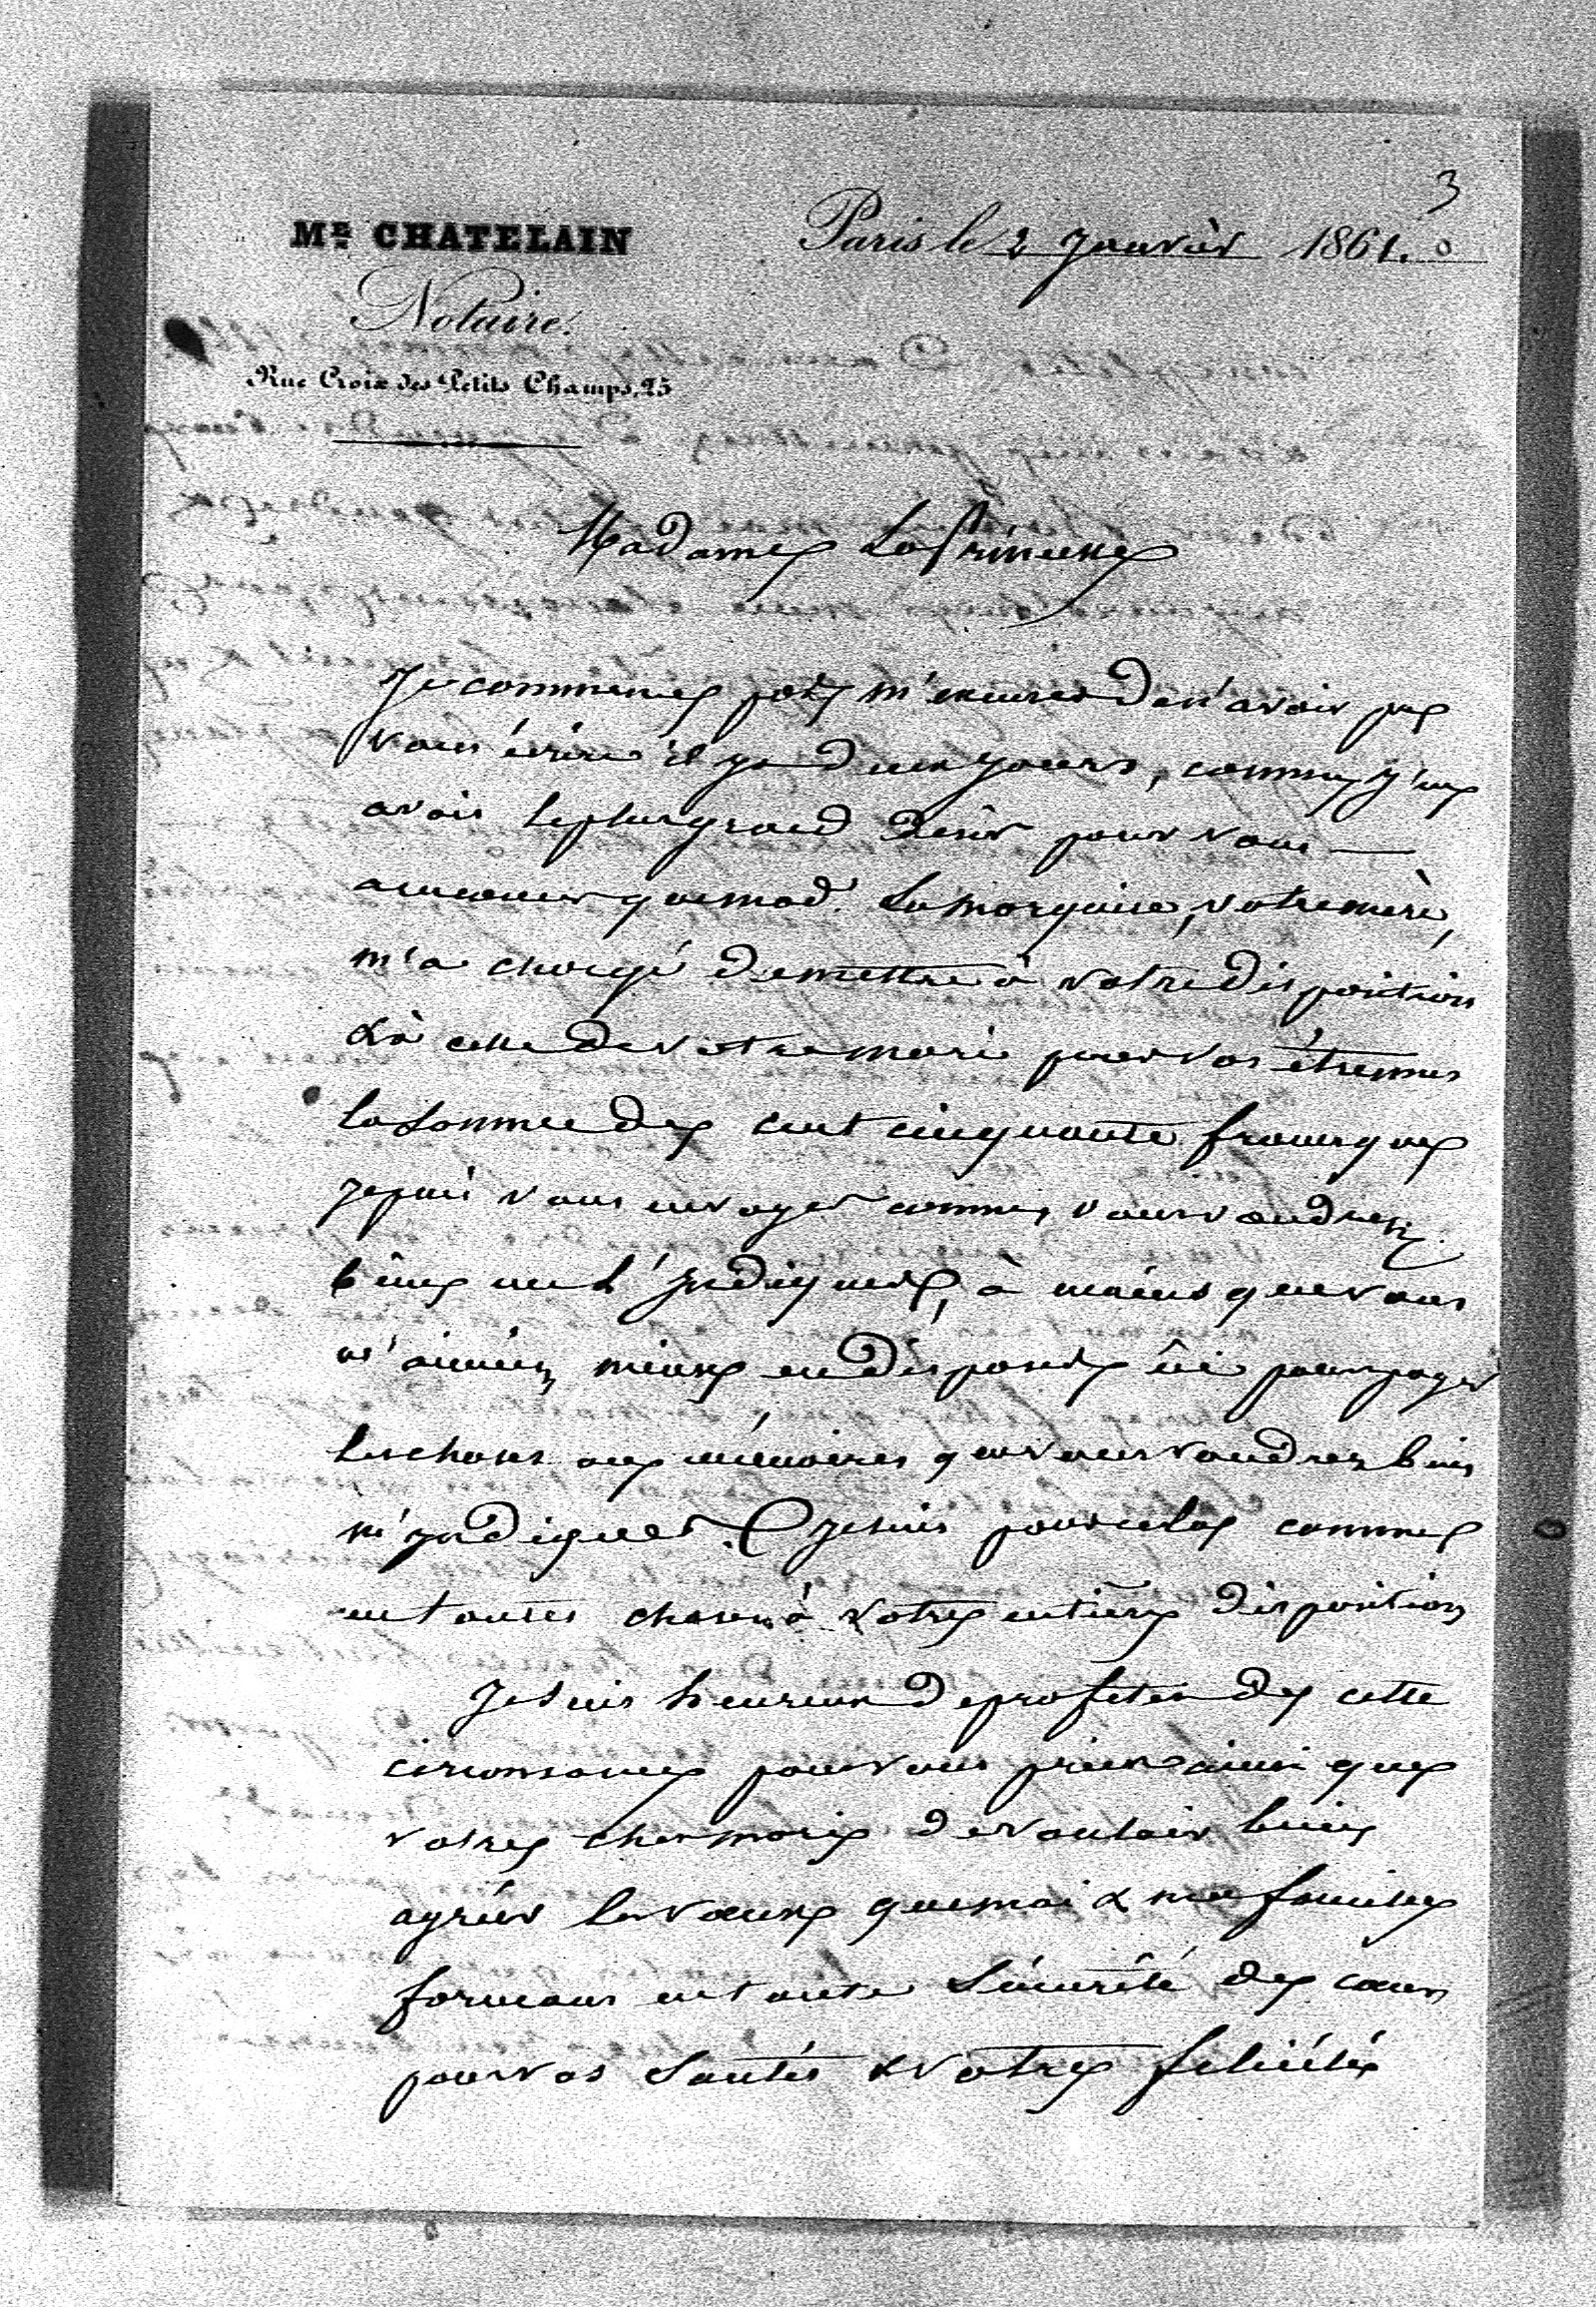 3
ME CHATELAIN
Paris le 2 Janvier 1861.
Notaire.
Rue Croix des Petits Champs, 25
Madame La Princesse
Je commence par m'excuser de n'avoir pas
vous écrire il y a deux jours, comme j'en
avais le plus grand désir pour vous
annoncer que mad. La marquise, votre mère,
m'a chargé de mettre à votre disposition
& à celle de votre mari pour vos étrennes
la somme de cent cinquante francs que
je puis vous envoyer comme vous voudrez
bien me l'indiquer, à moins que vous
n'aimiez mieux en disposer ici pour payer
les choses ou mémoires que vous voudrez bien
m'indiquer. Je suis pour cela comme
en toutes choses à votre entière disposition
Je suis heureux de profiter de cette
circonstance pour vous prier ainsi que
votre cher mari de vouloir bien
agréer les vœux que moi & ma famille
formons en toute sincérité de cœur
pour vos santés & votre félicité